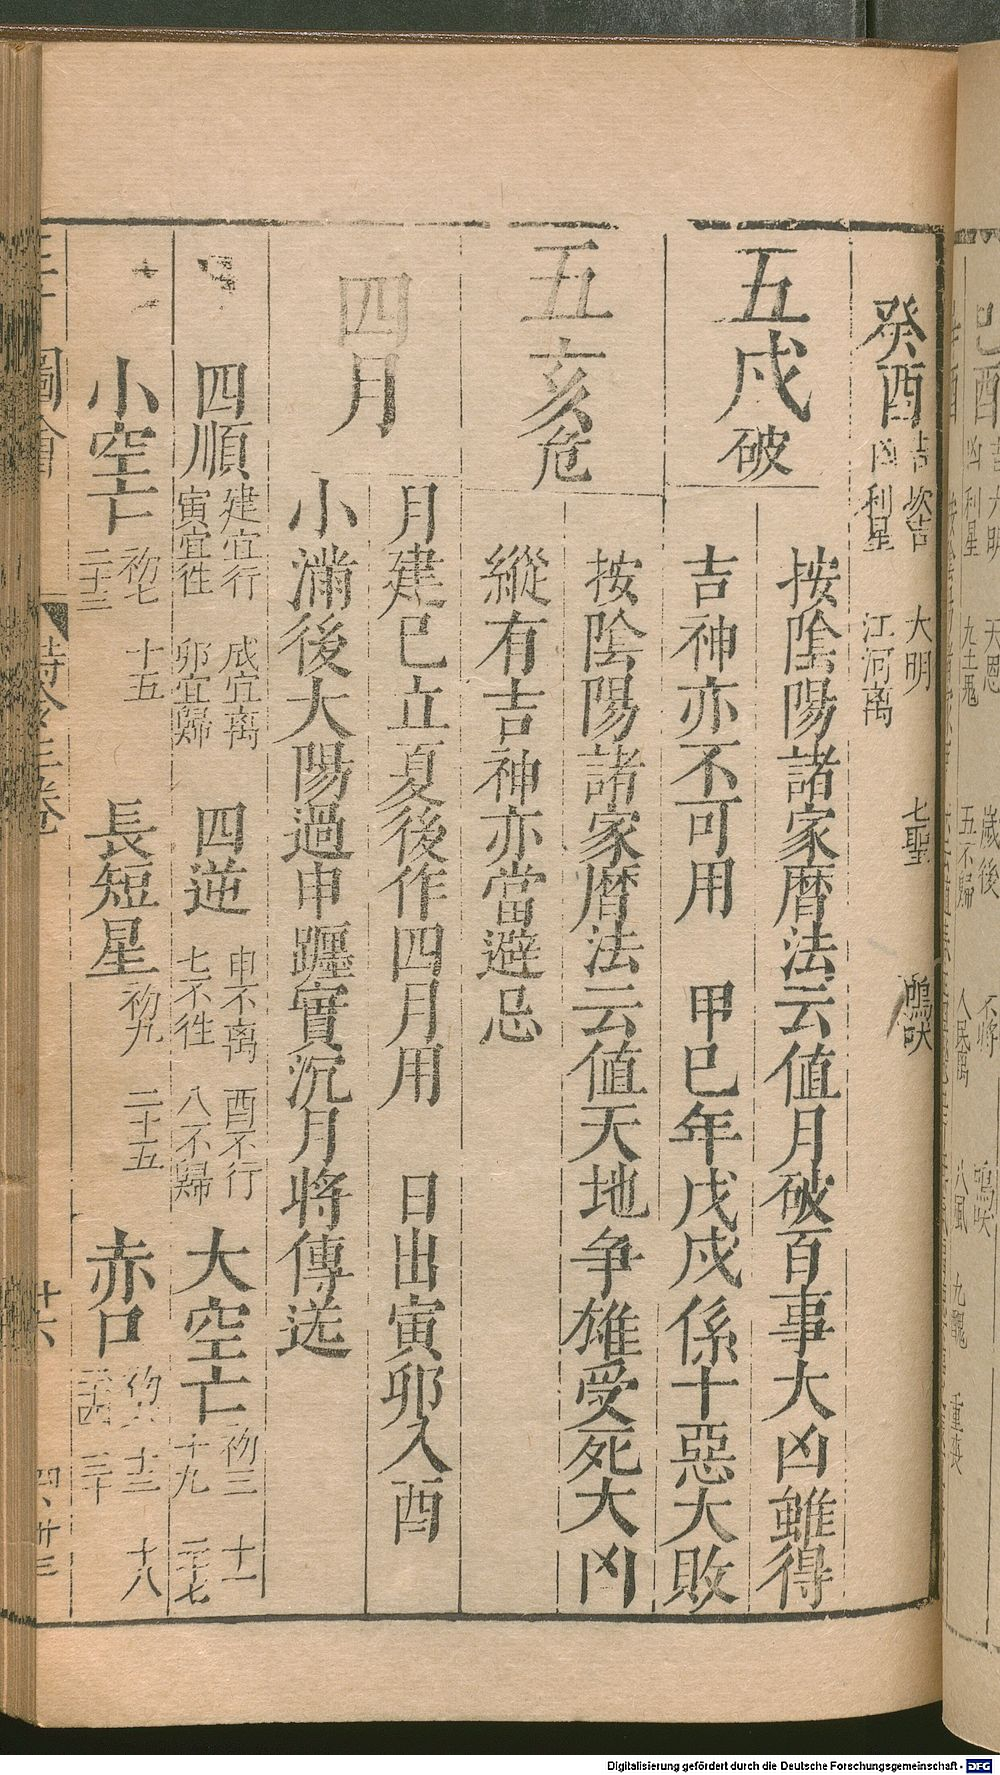 癸酉 吉 坎吉 大明 七聖 鳴吠
凶 利星 江河离
五戌破
按陰陽諸家曆法云値月破百事大凶雖得
吉神亦不可用 甲巳年戊戌係十惡大敗
五亥危
按陰陽諸家曆法云値天地争雄受死大凶
縱有吉神亦當避忌
四月
月建巳立夏後作四月用 日出寅卯入酉
小滿後大陽過申躔實沉月將傳送
四順 建宜行 成宜离 四逆 申不离 酉不行 大空亡 初三 十一
寅宜徃 卯宜歸 七不徃 八不歸 十九 二十七
小空亡 初七 十五 長短星 初九 二十五 赤口 十二 十八
二十三 二十四 三十
圖會 時令三卷 廿六
Digitalisierung gefördert durch die Deutsche Forschungsgemeinschaft - DFG